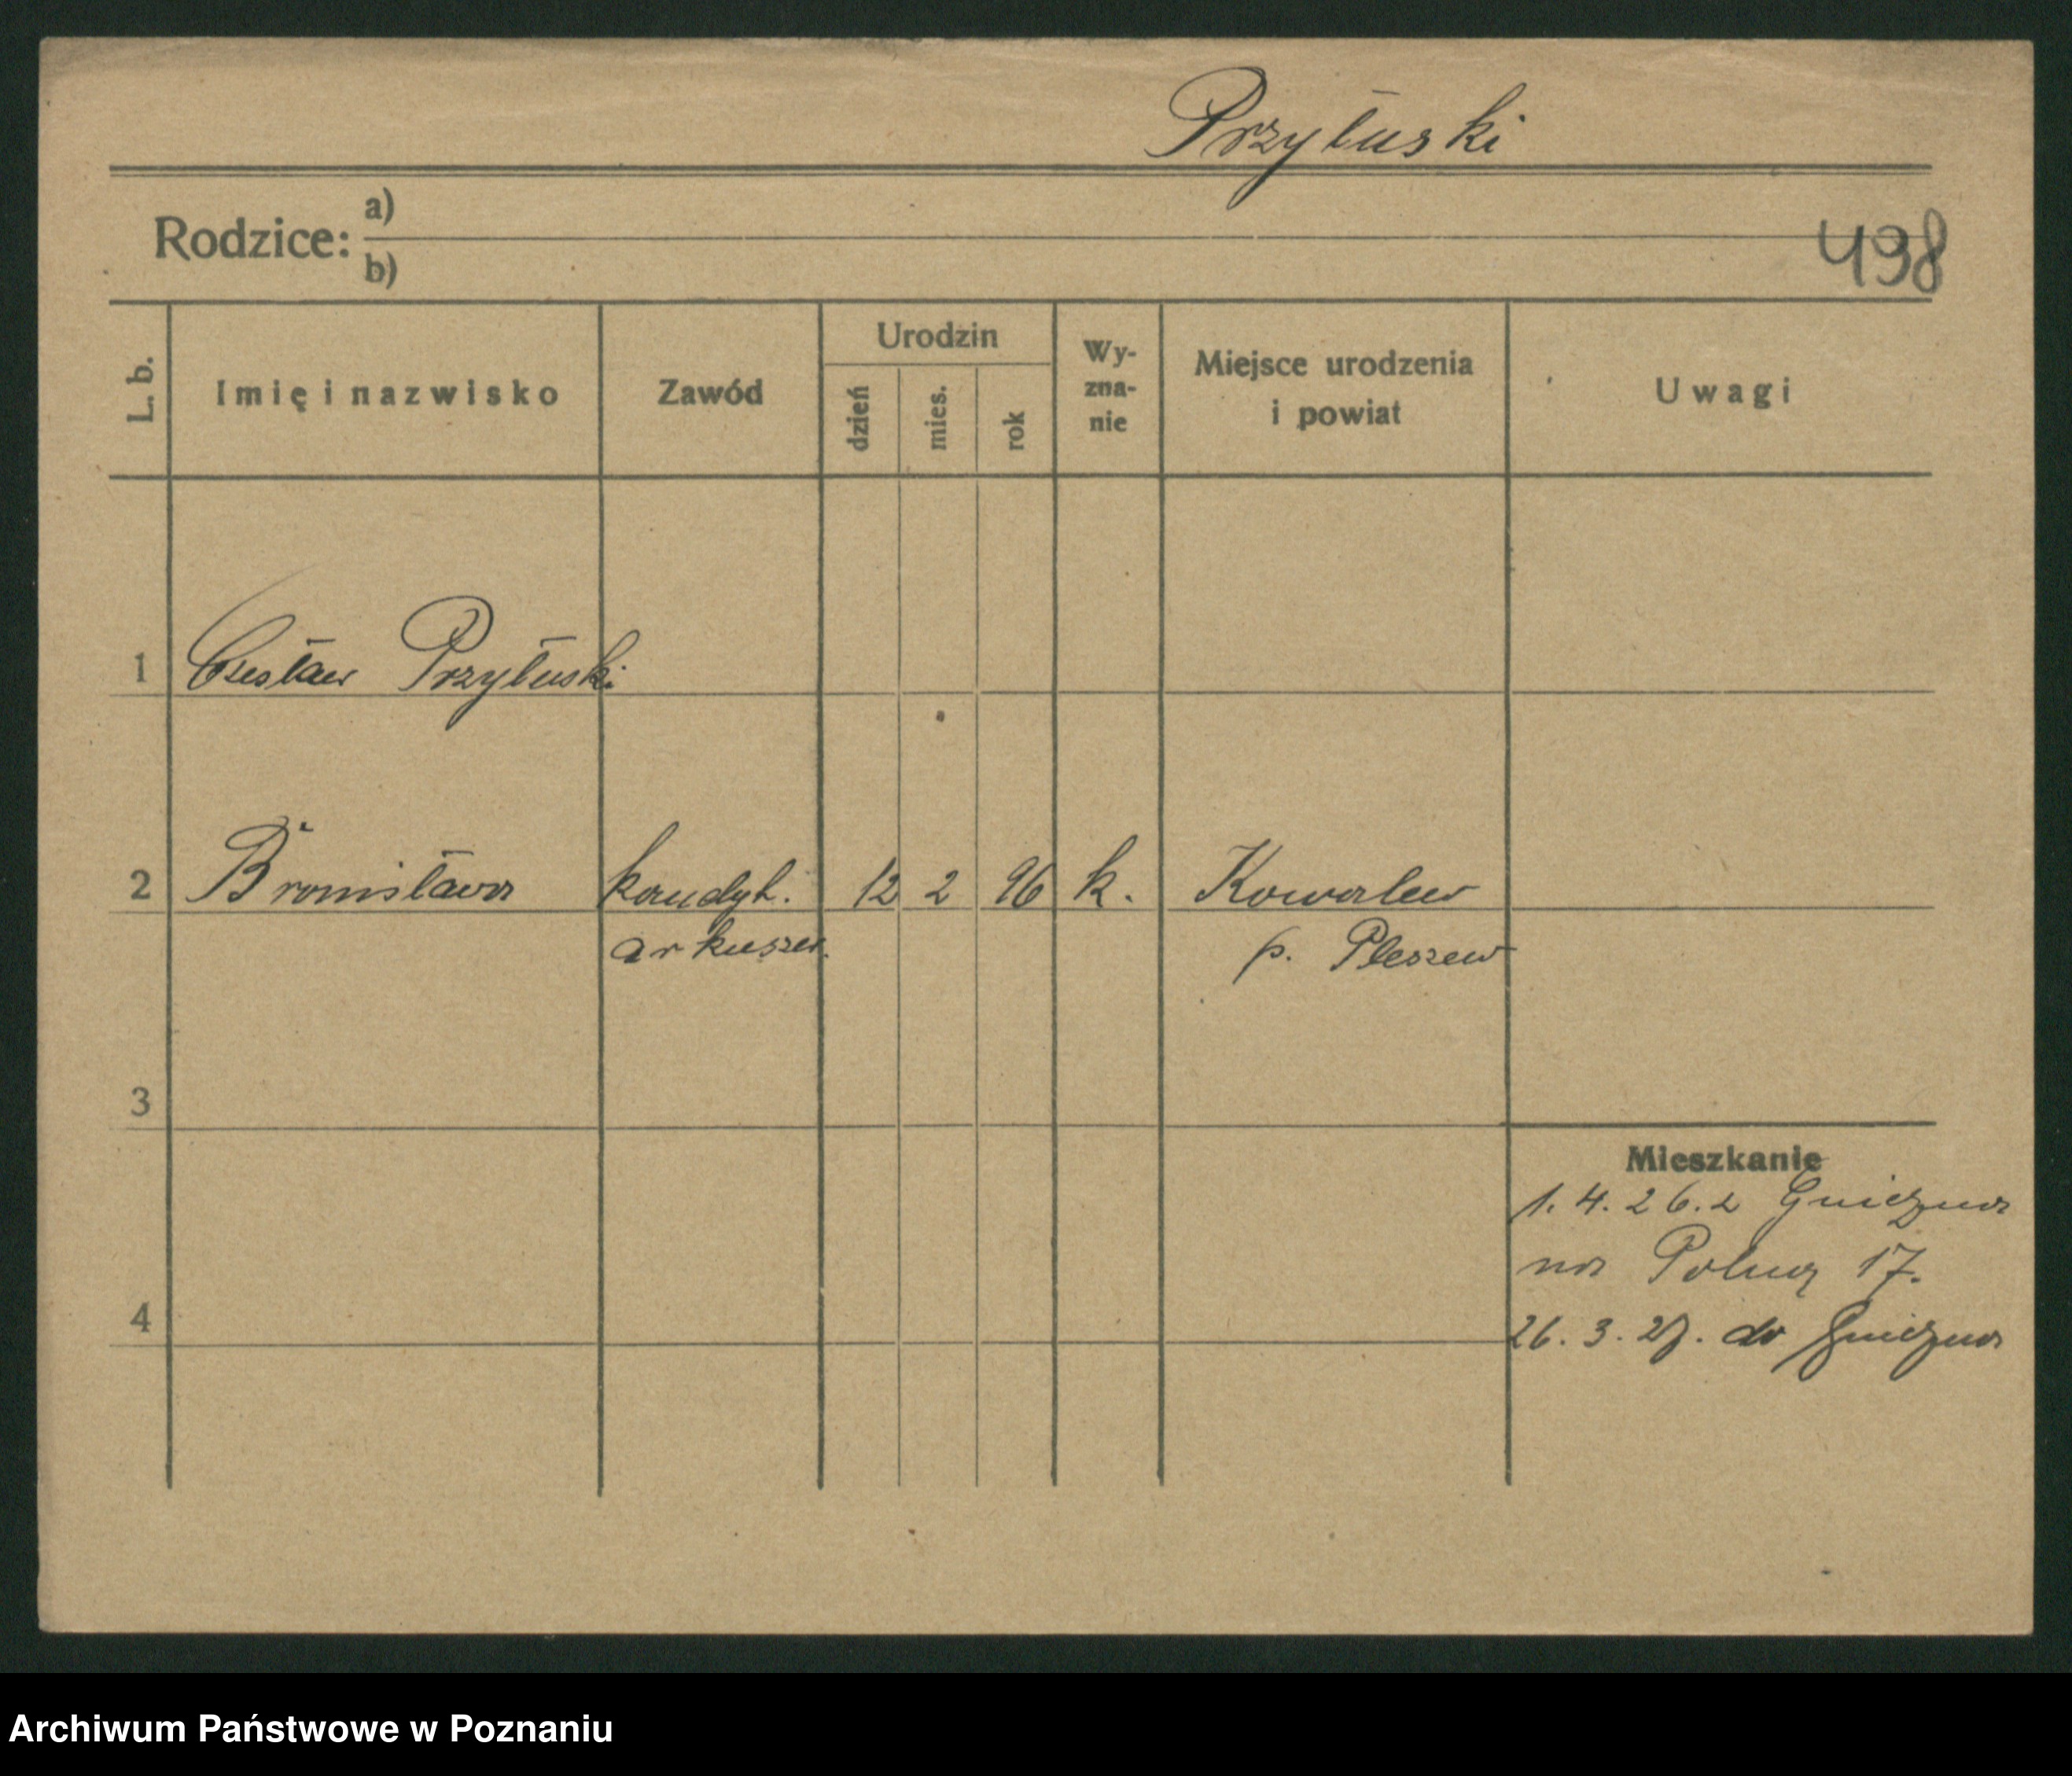 Przyłuski
Rodzice: a)
b)
498
L. b. Imię i nazwisko Zawód Urodzin dzień mies. rok Wy-zna-nie Miejsce urodzenia i powiat Uwagi
1 Czesław Przyłuski
2 Bronisława kandyt. 12 2 96 k. Kowalew
arkuszer. p. Pleszew
3
Mieszkanie
1. 4. 26. z Gniezna
na Polną 17.
4 26. 3. 27. do Gniezna
Archiwum Państwowe w Poznaniu